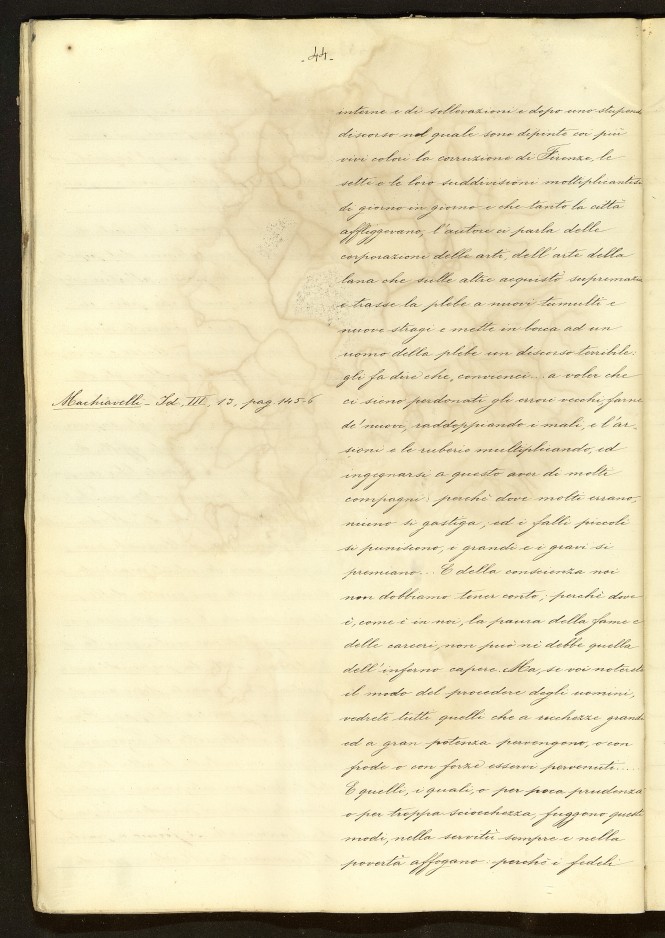 - 44 -
interne e di sollevazioni e dopo uno stupendo
discorso nel quale sono dipinte coi più
vivi colori la corruzione di Firenze, le
sette e le loro suddivisioni moltiplicantesi
di giorno in giorno e che tanto la città
affliggevano, l'autore ci parla delle
corporazioni delle arti, dell'arte della
lana che sulle altre acquistò supremazia
e trasse la plebe a nuovi tumulti e
nuove stragi e mette in bocca ad un
uomo della plebe un discorso terribile:
gli fa dire che, convienci... a voler che
Machiavelli - Id. III, 13, pag. 145-6
ci sieno perdonati gli errori vecchi, farne
de' nuovi, raddoppiando i mali, e l'ar-
sioni e le ruberie multiplicando, ed
ingegnarsi a questo aver di molti
compagni: perchè dove molti errano,
niuno si gastiga, ed i falli piccoli
si puniscono, i grandi e i gravi si
premiano... E della conscienza noi
non dobbiamo tener conto; perchè dove
è, come è in noi, la paura della fame e
delle carceri, non può nè debbe quella
dell'inferno capere. Ma, se voi noterete
il modo del procedere degli uomini,
vedrete tutti quelli che a ricchezze grandi
ed a gran potenza pervengono, o con
frode o con forza esservi pervenuti....
E quelli, i quali, o per poca prudenza
o per troppa sciocchezza, fuggono questi
modi, nella servitù sempre e nella
povertà affogano: perchè i fedeli